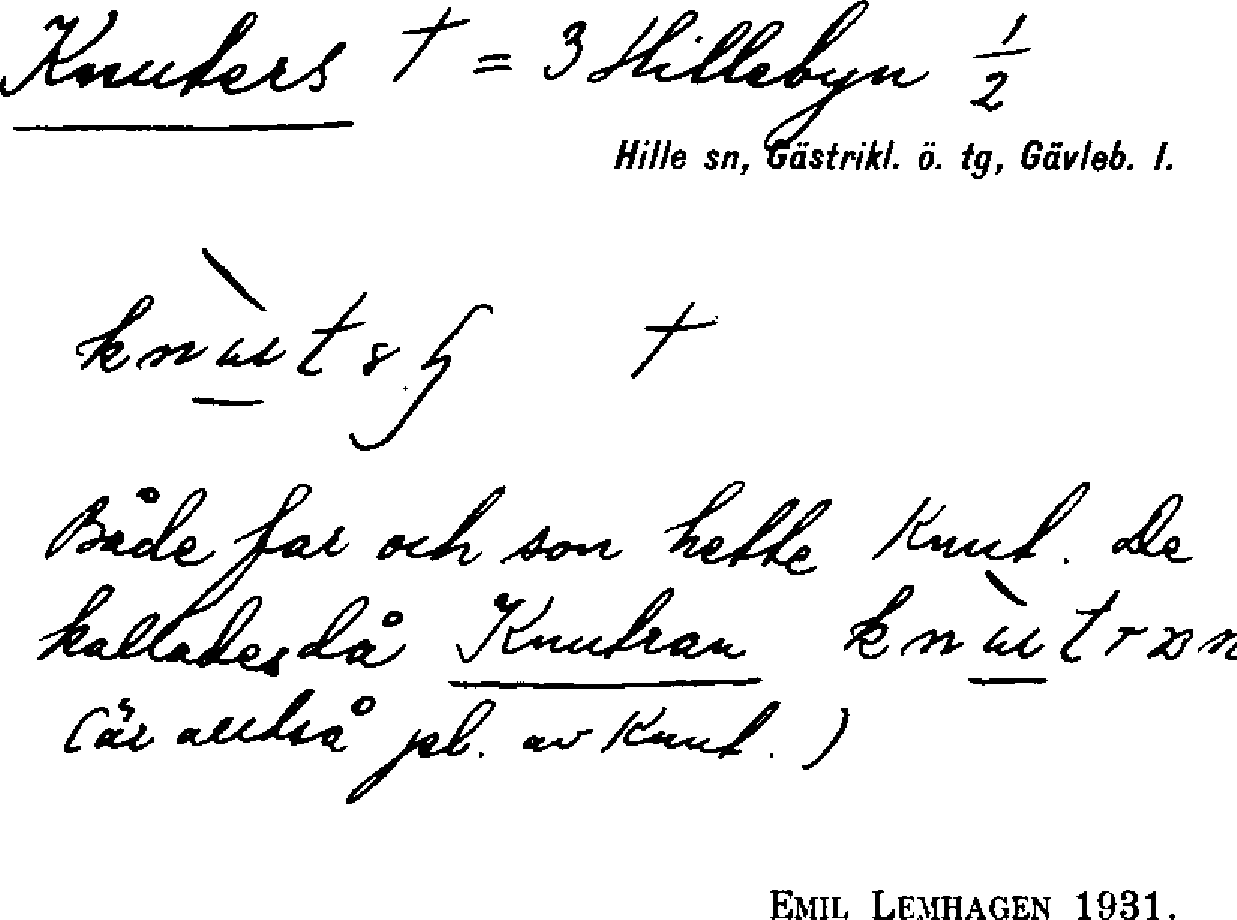 Knuters † = 3 Hillebyn 1/2
Hille sn, Gästrikl. ö. tg, Gävleb. l.
†
Både far och son hette Knut. De
kallades då Knutran
(är alltså pl. av Knut.)
EMIL LEMHAGEN 1931.